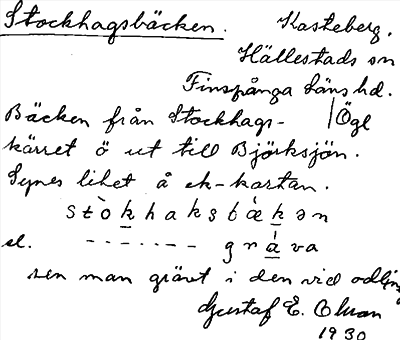 Stockhagsbäcken. Kasteberg.
Hällestads sn
Finspånga läns hd.
Bäcken från Stockhags- Ögl
kärret ö ut till Björksjön.
Synes litet å ek-kartan.
stòkhaksbækən
el. - - - - - - - gràva
sen man grävt i den vid odling
Gustaf E. Olson
1930